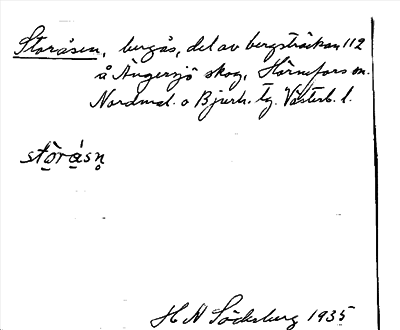 Storåsen, bergås, del av bergsträckan 112
å Ängersjö skog, Hörnefors m.
Nordmal. o Bjurh. tg. Västerb. l.
stòrásn̥
H N Söderberg 1935